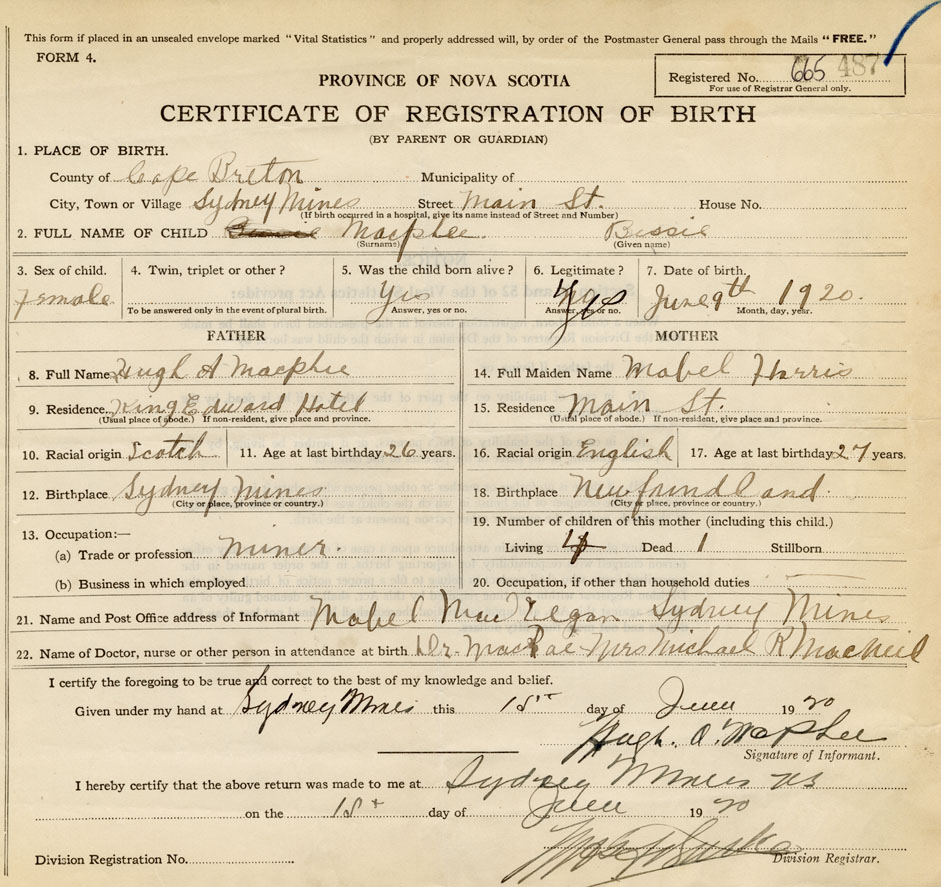 This form if placed in an unsealed envelope marked "Vital Statistics" and properly addressed will, by order of the Postmaster General pass through the Mails "FREE."
FORM 4.
Registered No. 665 487
For use of Registrar General only.
PROVINCE OF NOVA SCOTIA
CERTIFICATE OF REGISTRATION OF BIRTH
(BY PARENT OR GUARDIAN)
1. PLACE OF BIRTH.
County of Cape Breton Municipality of
City, Town or Village Sydney Mines Street Main St. House No.
(If birth occurred in a hospital, give its name instead of Street and Number)
2. FULL NAME OF CHILD Macphee. Bessie
(Surname) (Given name)
3. Sex of child. 4. Twin, triplet or other? 5. Was the child born alive? 6. Legitimate? 7. Date of birth.
Female Yes Yes June 9th 1920.
To be answered only in the event of plural birth. Answer, yes or no. Answer, yes or no. Month, day, year.
FATHER
8. Full Name Hugh A Macphee
9. Residence. King Edward Hotel
(Usual place of abode.) If non-resident, give place and province.
10. Racial origin Scotch 11. Age at last birthday 26 years.
12. Birthplace Sydney Mines
(City or place, province or country.)
13. Occupation:—
(a) Trade or profession Miner.
(b) Business in which employed
MOTHER
14. Full Maiden Name Mabel Harris
15. Residence Main St.
(Usual place of abode.) If non-resident, give place and province.
16. Racial origin English 17. Age at last birthday 27 years.
18. Birthplace Newfoundland
(City or place, province or country.)
19. Number of children of this mother (including this child.)
Living 4 Dead 1 Stillborn
20. Occupation, if other than household duties
21. Name and Post Office address of Informant Mabel Sydney Mines
22. Name of Doctor, nurse or other person in attendance at birth Dr. MacRae - Mrs Michael R MacNeil
I certify the foregoing to be true and correct to the best of my knowledge and belief.
Given under my hand at Sydney Mines this 18 day of June 1920
Hugh. A. MacPhee
Signature of Informant.
I hereby certify that the above return was made to me at Sydney Mines NS
on the 18 day of June 1920
Division Registration No. Division Registrar.